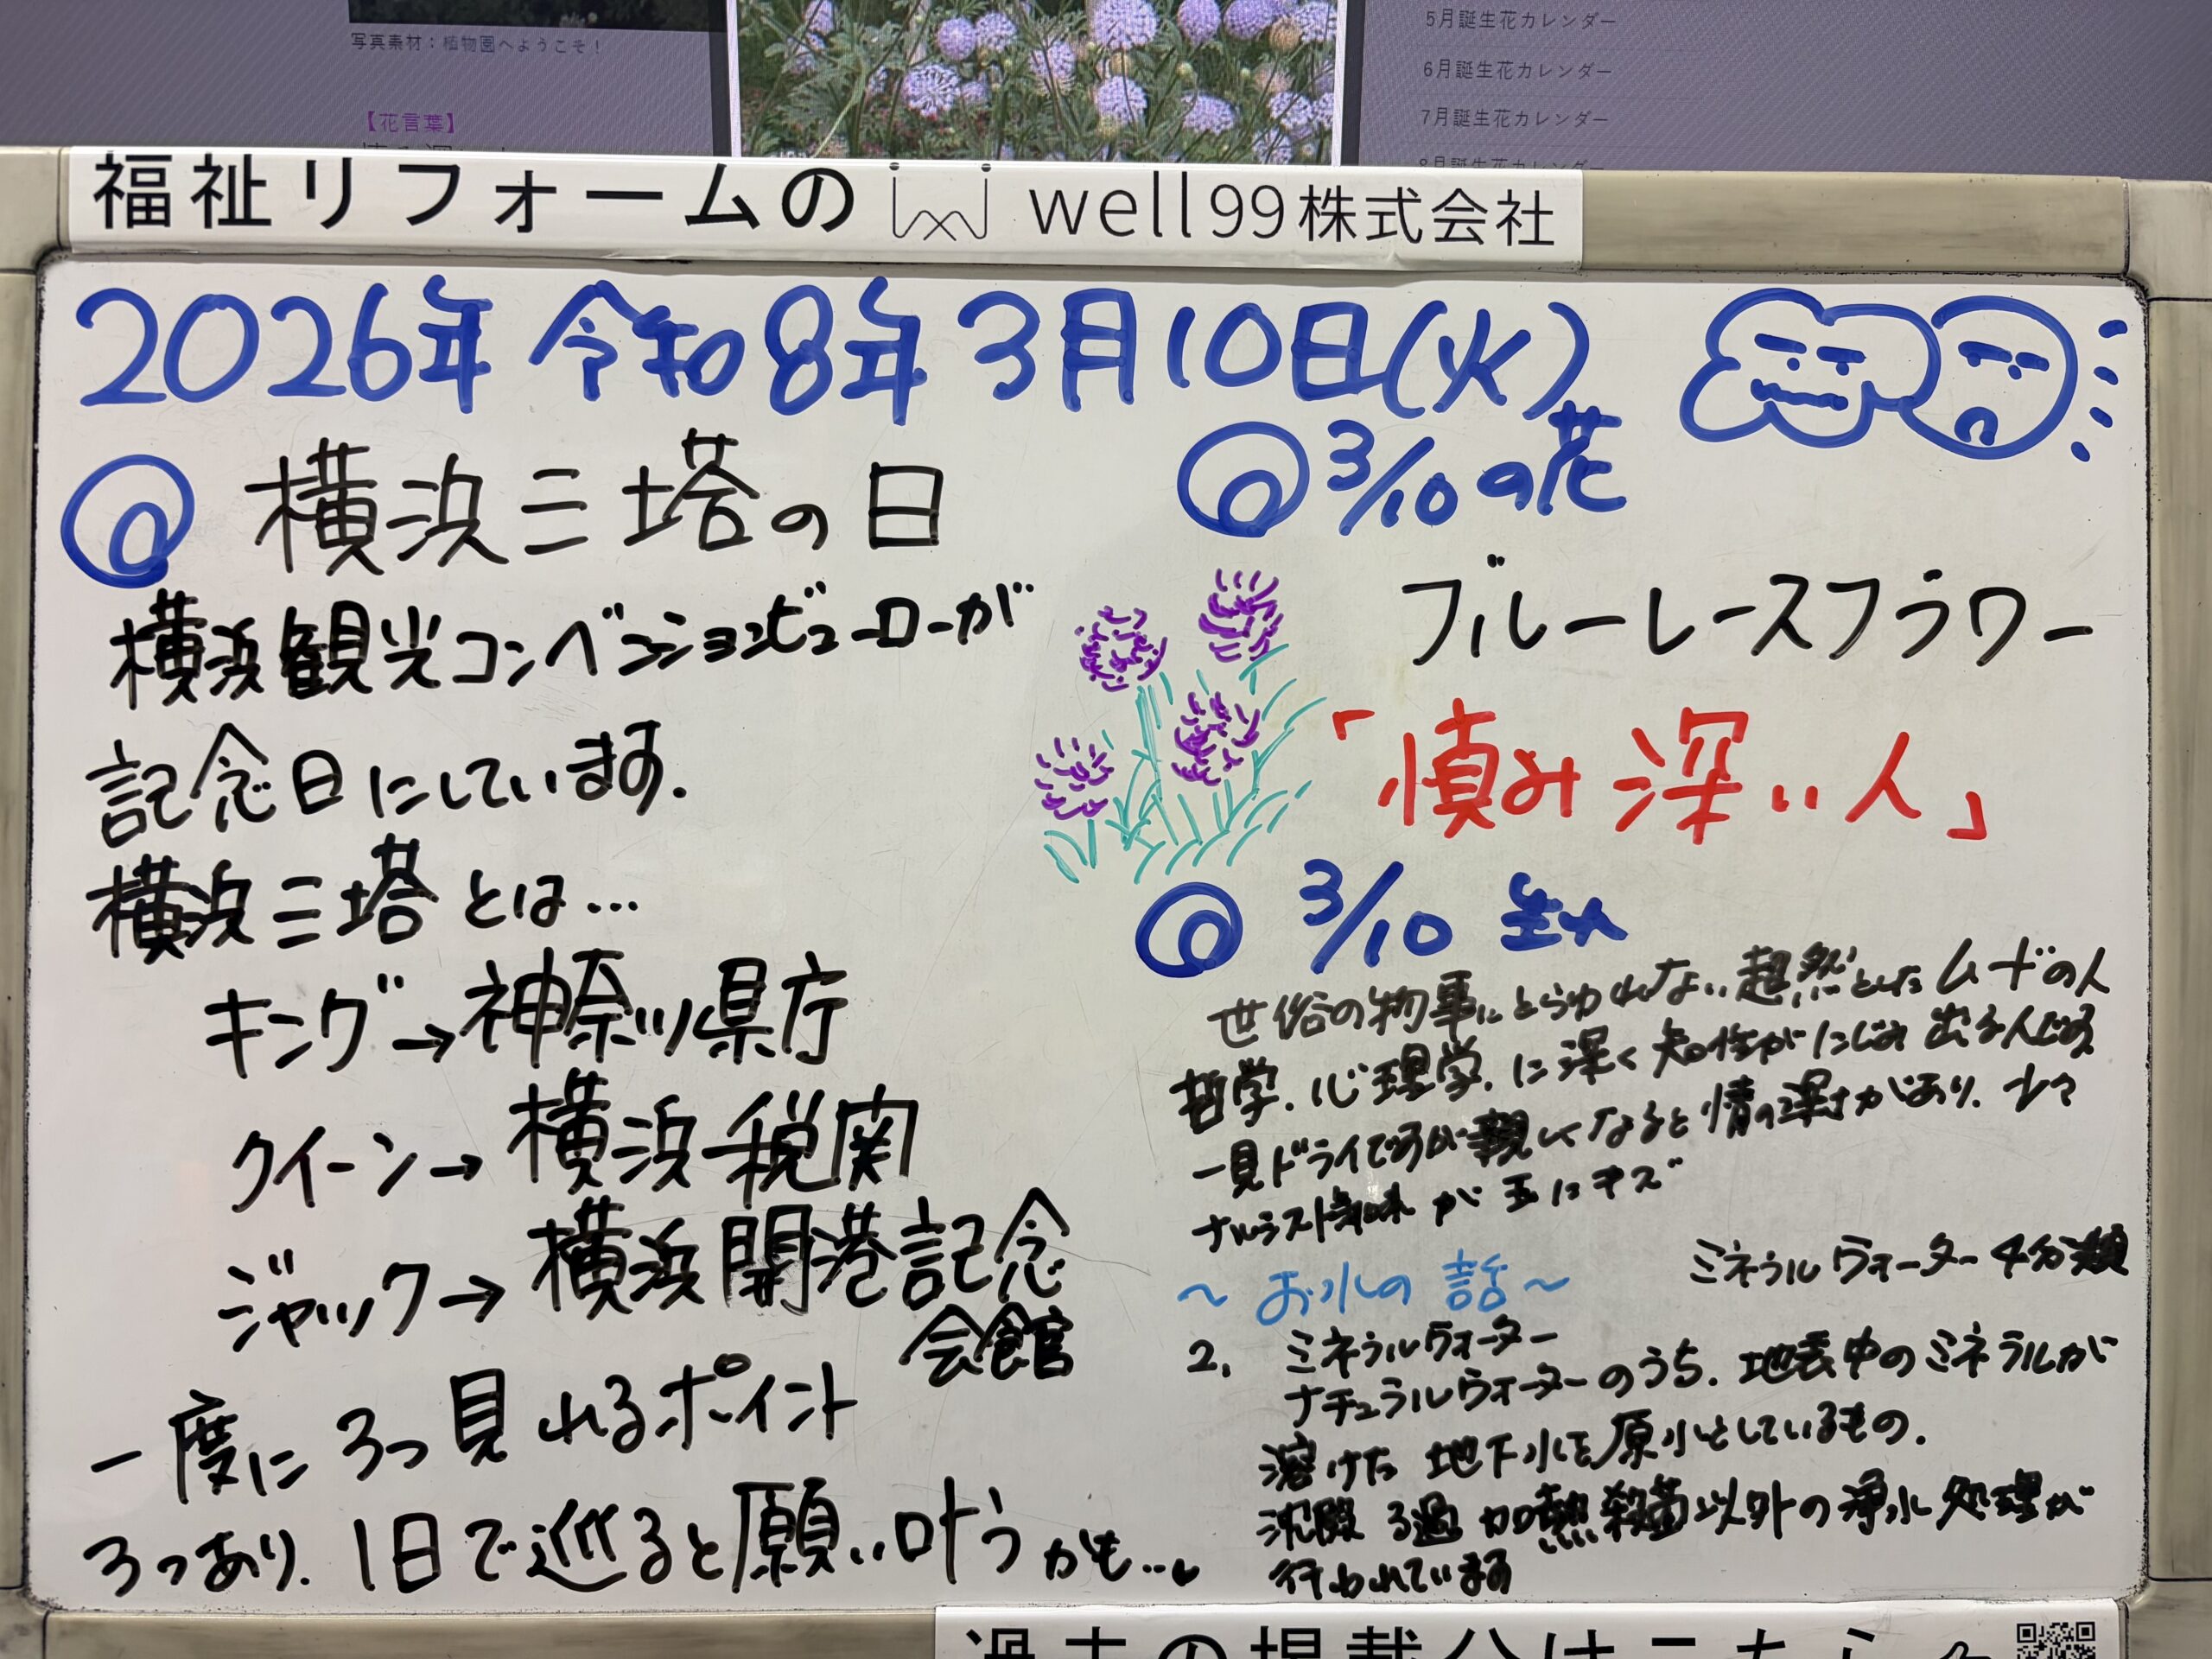 写真素材：植物園へようこそ！
【花言葉】
5月誕生花カレンダー
6月誕生花カレンダー
7月誕生花カレンダー
8月誕生花カレンダー
福祉リフォームの well99株式会社
2026年 令和8年 3月10日(火)
横浜三塔の日
横浜観光コンベンションビューローが
記念日にしています.
横浜三塔とは…
キング→神奈川県庁
クイーン→横浜税関
ジャック→横浜開港記念
会館
一度に3つ見れるポイント
3つあり. 1日で巡ると願い叶うかも…
3/10の花
ブルーレースフラワー
「慎み深い人」
3/10 生れ
世俗の物事にとらわれない超然としたムードの人
哲学.心理学.に深く知性がにじみ出る人です
一見ドライですが親しくなると情の深さがあり.少々
ナルシスト気味が玉にキズ
〜お水の話〜 ミネラルウォーター4分類
2. ミネラルウォーター
ナチュラルウォーターのうち.地表中のミネラルが
溶けた地下水を原水としているもの.
沈殿 ろ過 加熱殺菌以外の浄水処理が
行われています
過去の掲載分はこちら